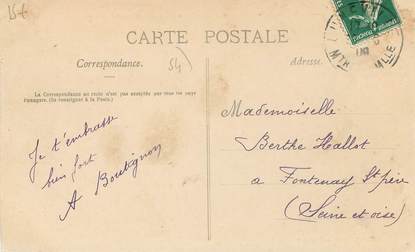 15€
CARTE POSTALE
Correspondance.
54
Adresse.
La Correspondance au recto n'est pas acceptée par tous les pays
étrangers. (Se renseigner à la Poste.)
Je t'embrasse
bien fort
A Boutignon
Mademoiselle
Berthe Hallot
a Fontenay St père
(Seine et oise)